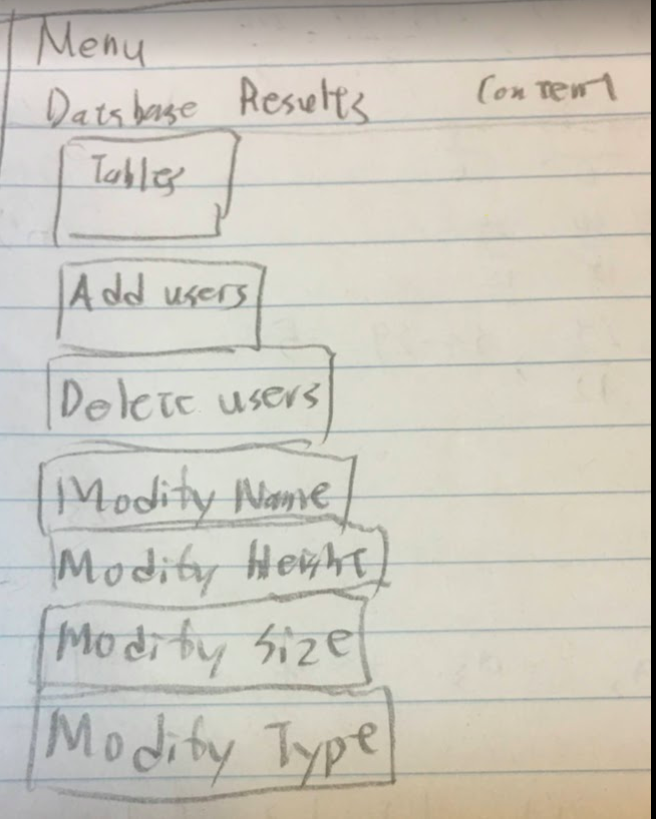 Menu
Database Results Content
Tables
Add users
Delete users
Modify Name
Modify Height
Modify Size
Modify Type